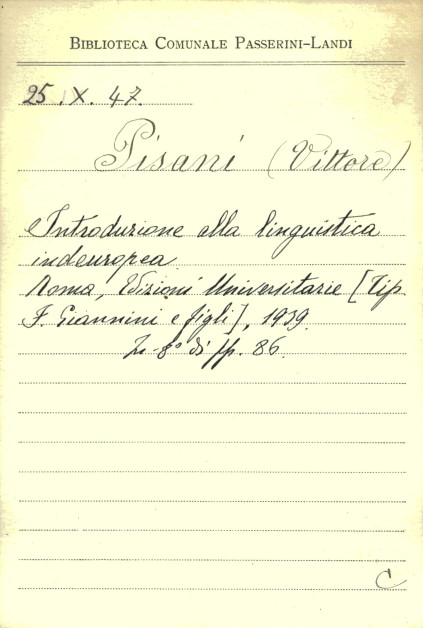 BIBLIOTECA COMUNALE PASSERINI-LANDI
25.X.47.
Pisani (Vittore)
Introduzione alla linguistica
indeuropea
Roma, Edizioni Universitarie [Tip.
F. Giannini e figli], 1939.
In-8° di pp. 86.
C